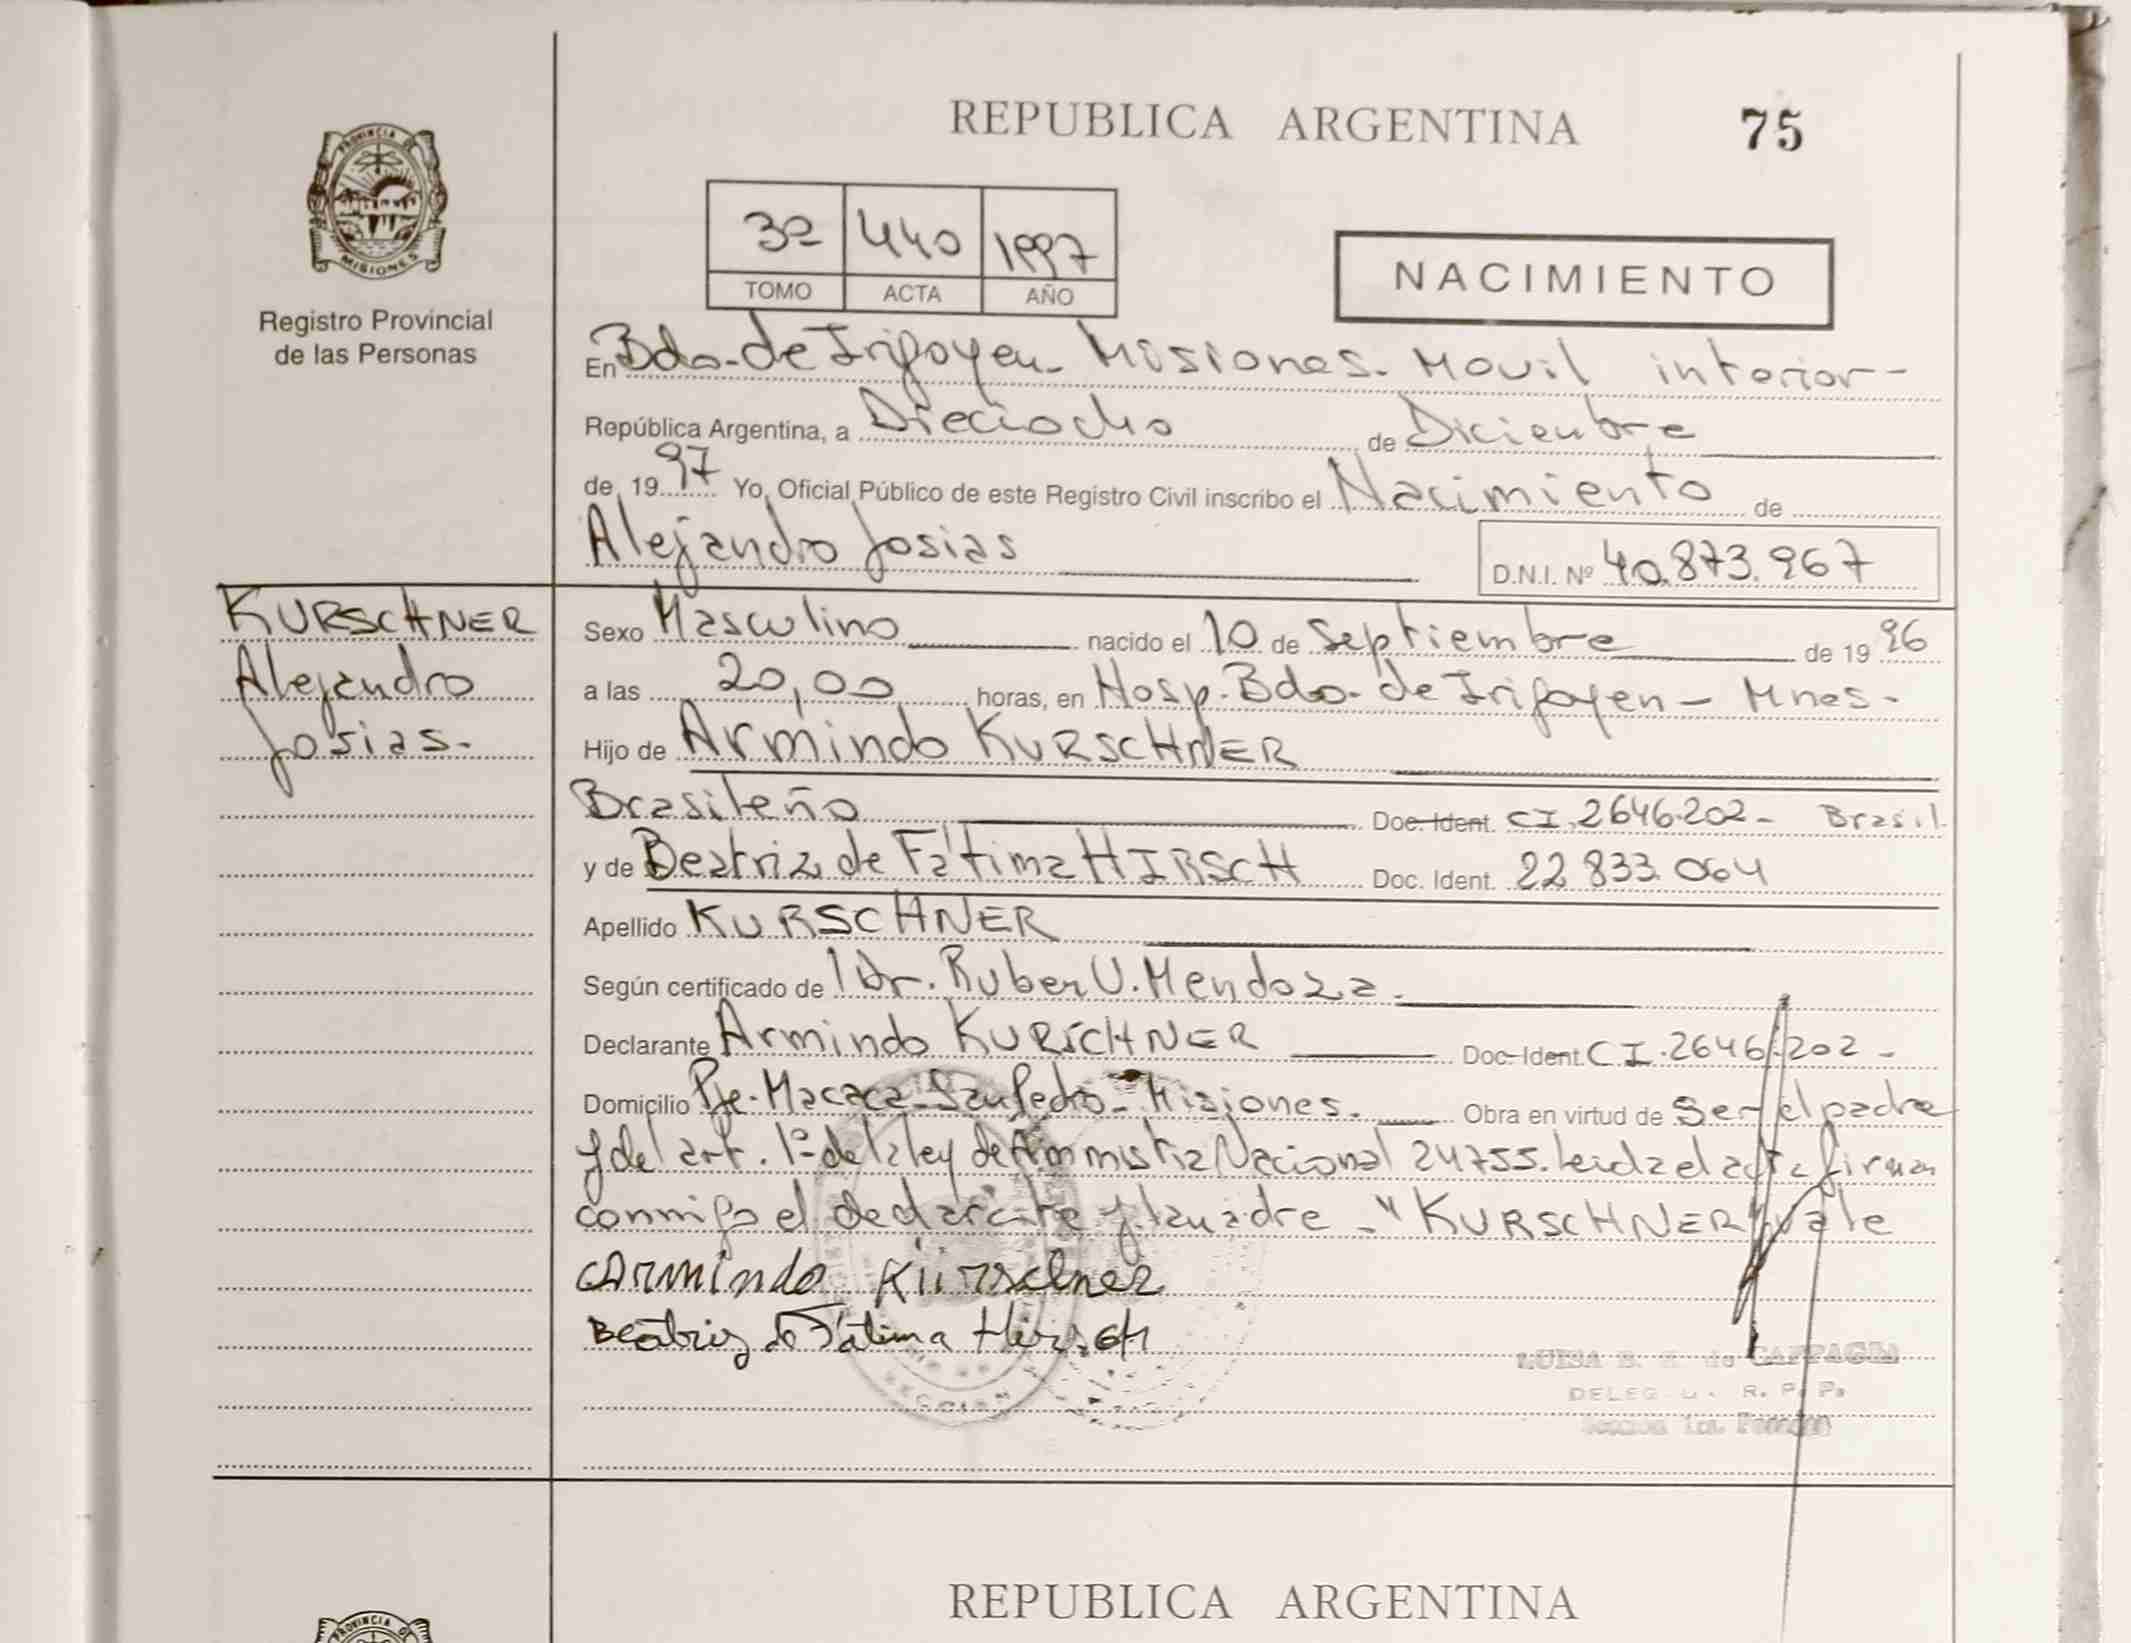 REPUBLICA ARGENTINA 75
PROVINCIA DE
MISIONES
Registro Provincial
de las Personas
3º 440 1997
TOMO ACTA AÑO
NACIMIENTO
En Bdo. de Irigoyen - Misiones. Movil interior -
República Argentina, a Dieciocho de Diciembre
de 19 97 Yo, Oficial Público de este Registro Civil inscribo el Nacimiento de
Alejandro Josias D.N.I. Nº 40.873.967
KURSCHNER
Alejandro
Josias.
Sexo Masculino nacido el 10 de Septiembre de 19 96
a las 20,00 horas, en Hosp. Bdo. de Irigoyen - Mnes.
Hijo de Armindo KURSCHNER
Brasileño Doc. Ident. CI. 2646.202 - Brasil
y de Beatriz de Fátima HIRSCH Doc. Ident. 22 833.064
Apellido KURSCHNER
Según certificado de Dr. Ruben V. Mendoza.
Declarante Armindo KURSCHNER Doc. Ident. CI. 2646.202 -
Domicilio Pje. Macaca - San Pedro - Misiones. Obra en virtud de Ser el padre
y del art. 1º de la ley de Amnistia Nacional 24755. Leida el acta firman
conmigo el declarante y la madre - "KURSCHNER" vale
Armindo Kürschner
Beatriz de Fátima Hirsch
LUISA de
DELEG R. P. P.
REPUBLICA ARGENTINA
PROVINCIA DE